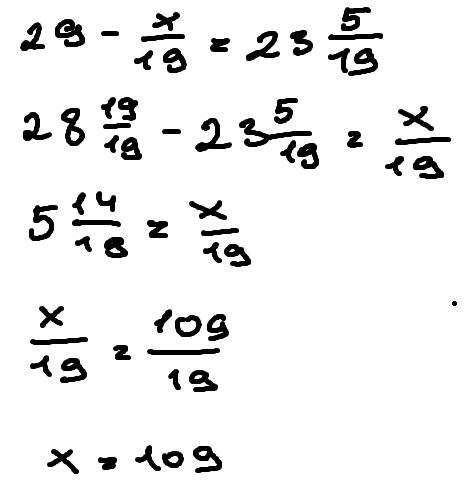 29 - x/19 = 23 5/19
28 19/19 - 23 5/19 = x/19
5 14/19 = x/19
x/19 = 109/19
x = 109